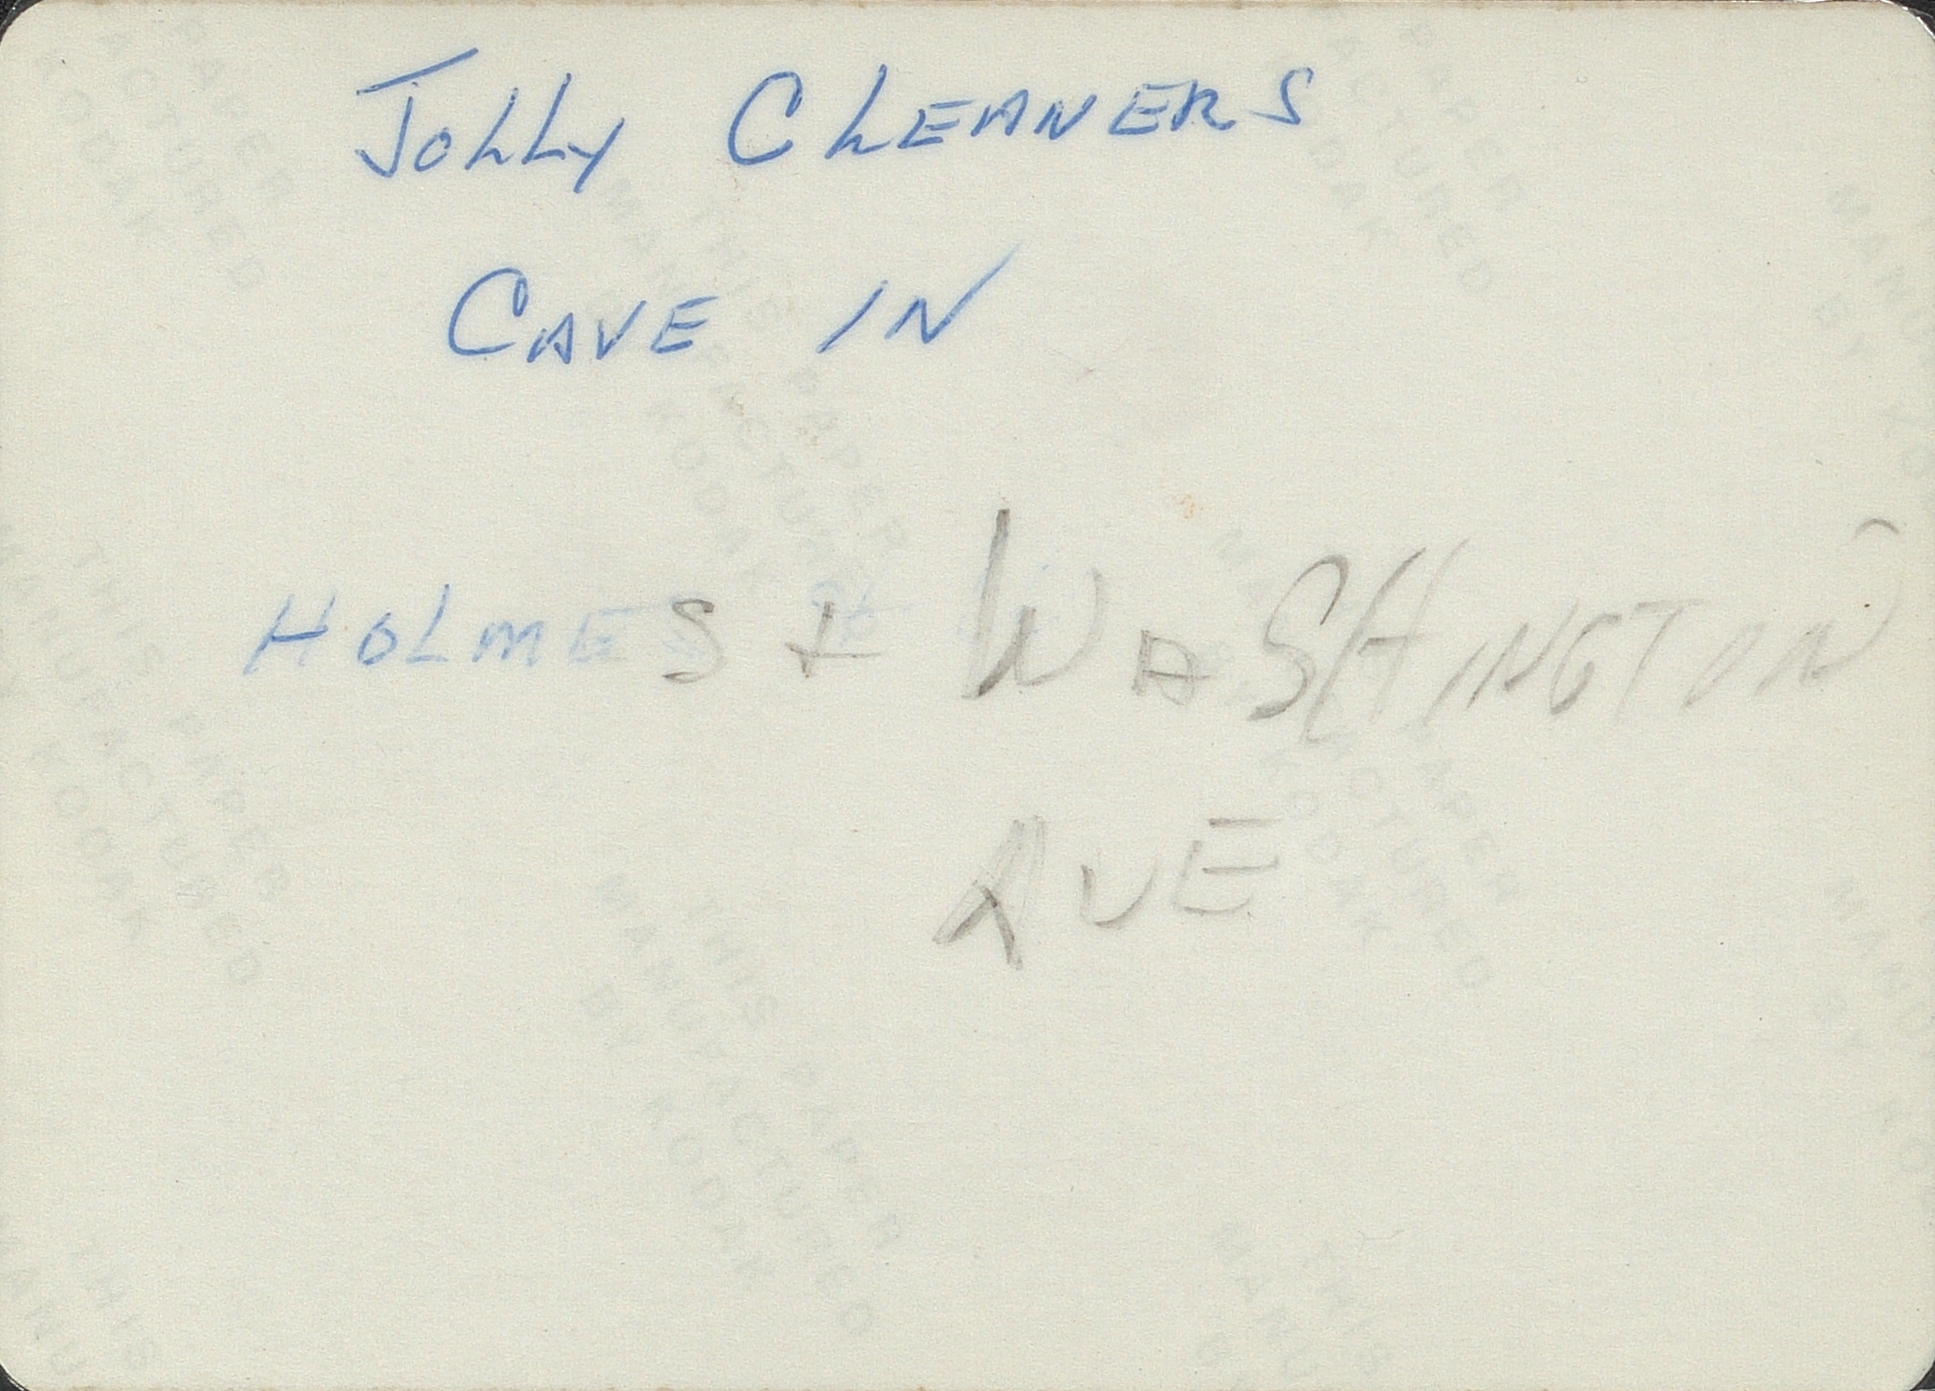 JOLLY CLEANERS
CAVE IN
HOLMES & WASHINGTON
AVE
THIS PAPER
MANUFACTURED
BY KODAK